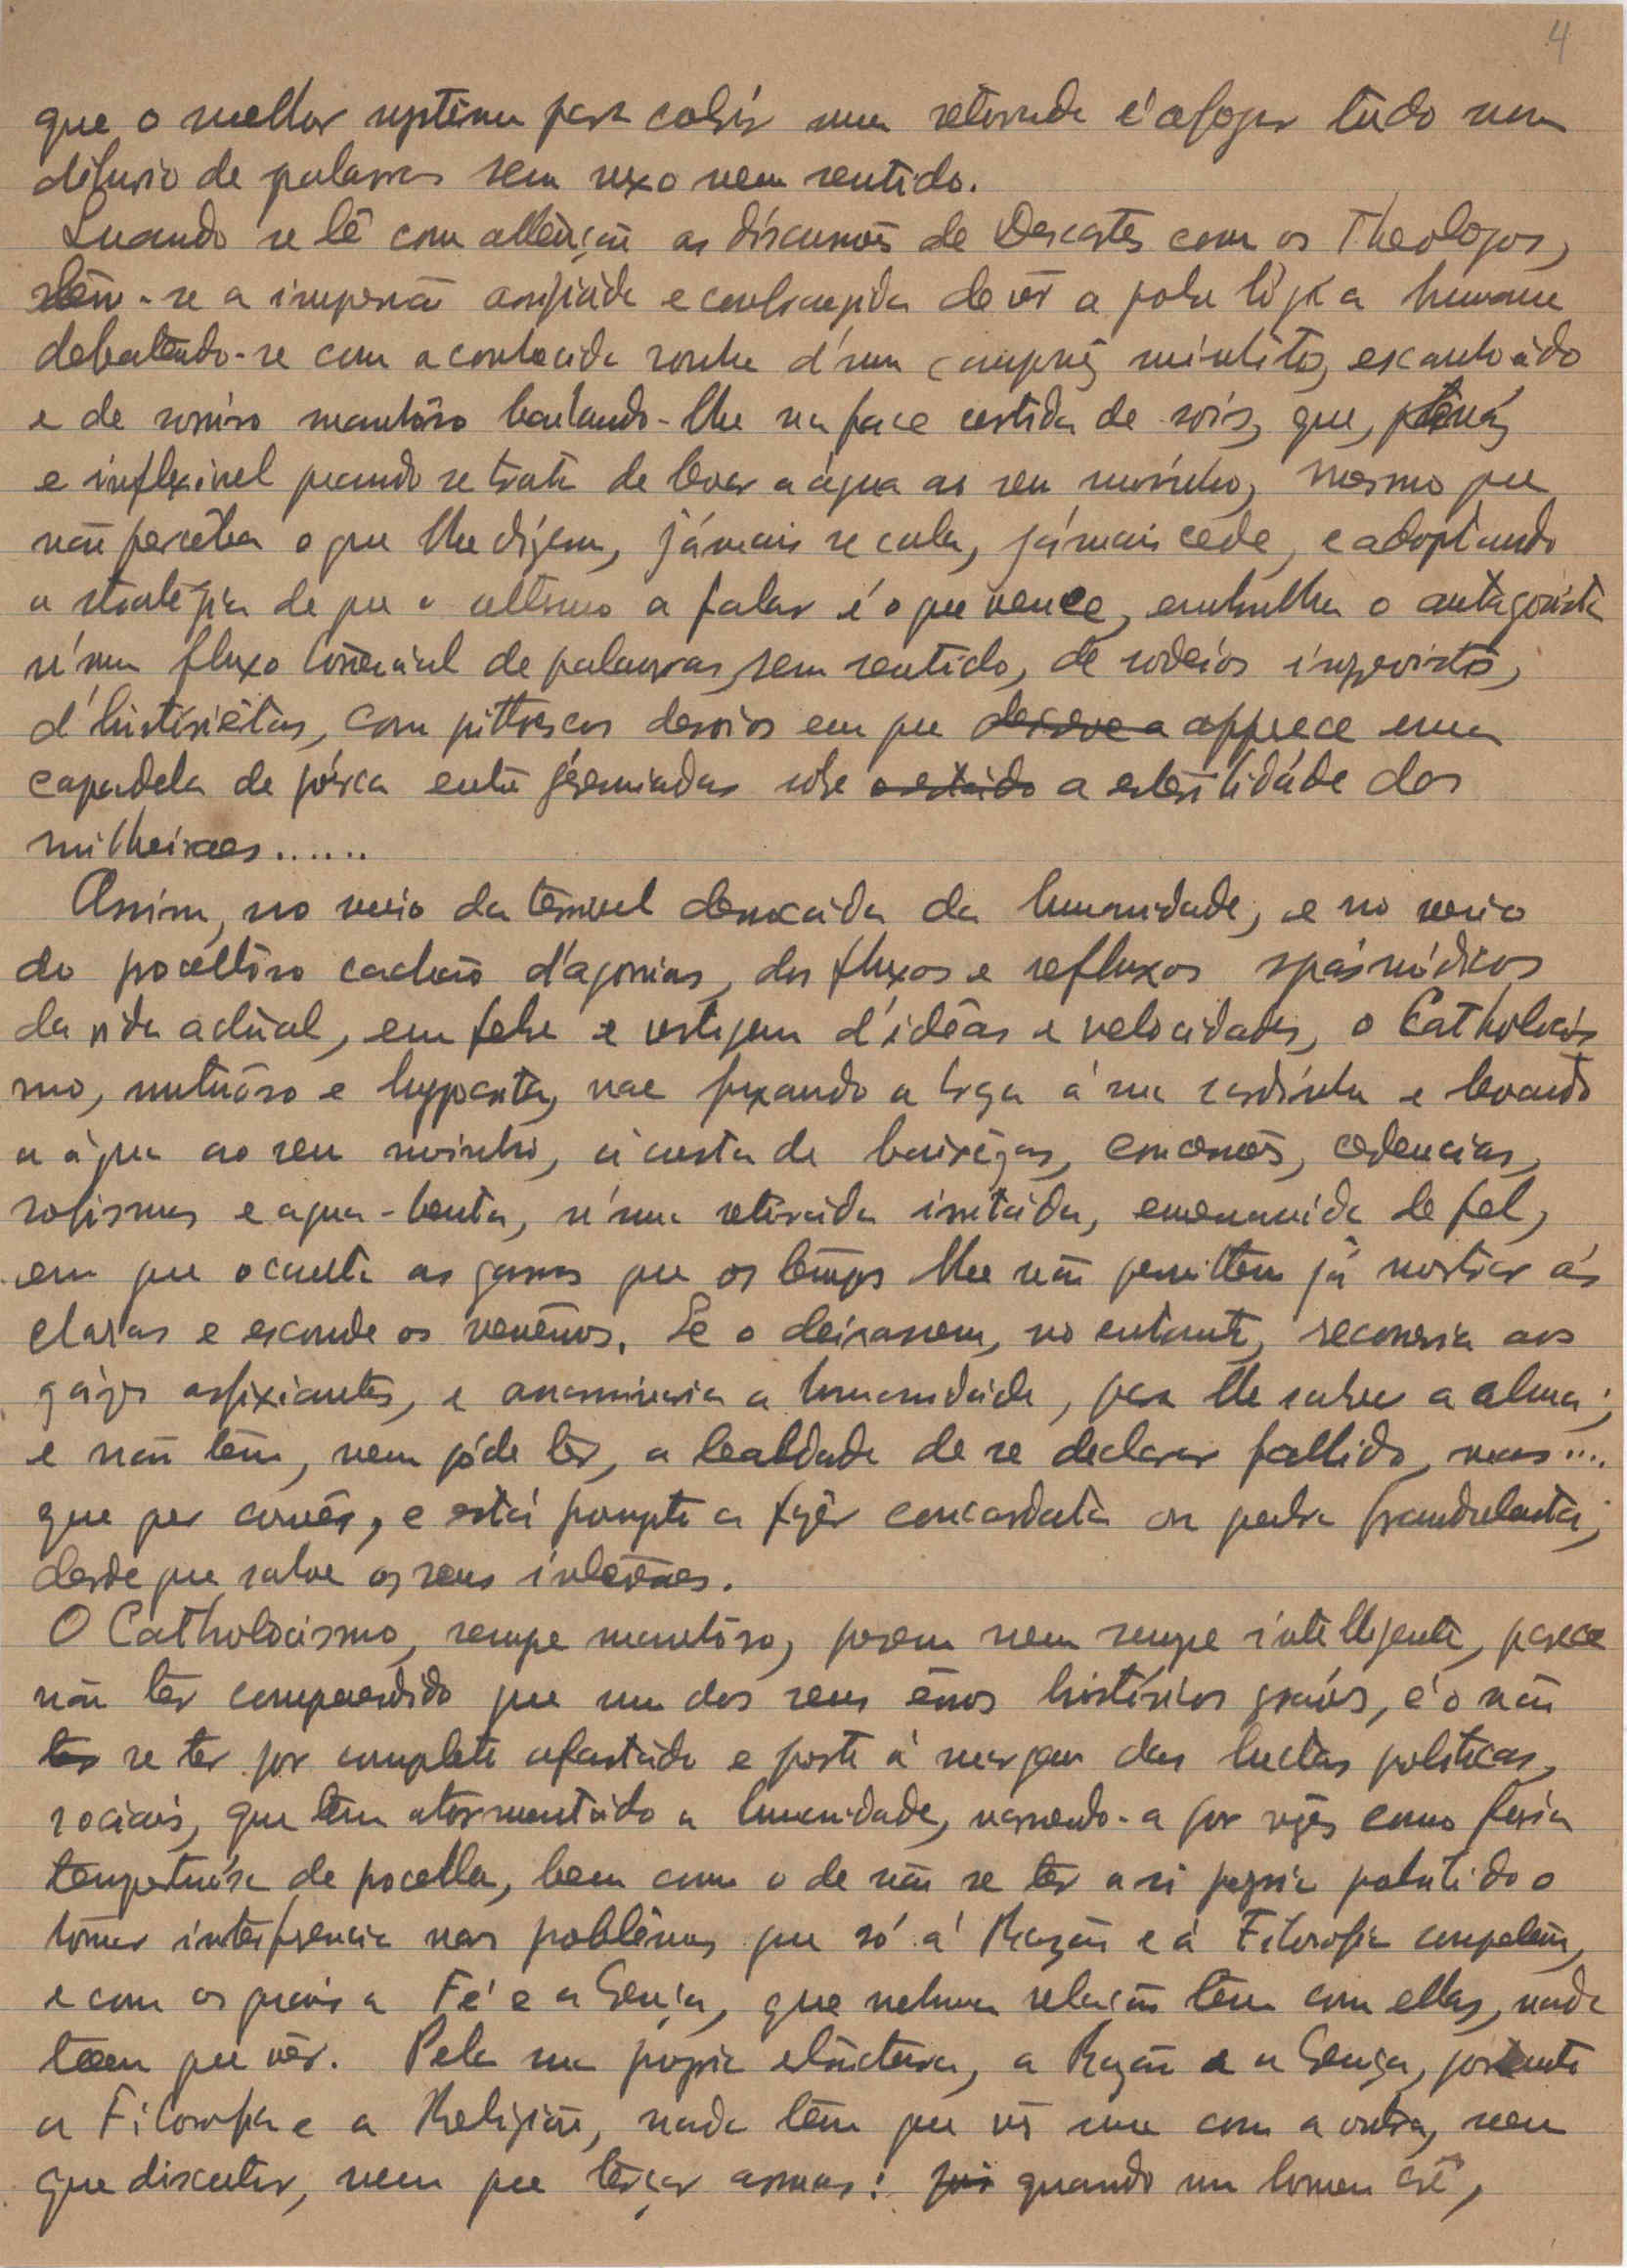 4
que o melhor systema para cobrir uma retirada é afogar tudo num
diluvio de palavras sem nexo nem sentido.
Quando se lê com attenção as discussões de Descartes com os Theologos,
têm-se a impressão e de vêr a pobre lógica humana
debatendo-se com a conhecida ronha d'um camponez minhôto, escanhoádo
e de sorriso manhôso bailando-lhe na face curtida de soes, que, tenáz
e inflexivel quando se trata de levar a água ao seu moinho, mesmo que
não percêba o que lhe dizem, jámais se cala, jámais cede, e adoptando
a stratégia de que o ultimo a falar é o que vence, embrulha o antagonista
n'um fluxo torrencial de palavras, sem sentido, de rodeios imprevistos,
d'historiêtas, com pittorescos desvios em que apparece uma
capadela de pórca entre géremiadas sobre a esterilidáde dos
milheiraes......
Assim, no meio da terrivel derrocáda da humanidade, e no meio
do procellôso cachão d'agonias, dos fluxos e refluxos spásmódicos
da vida actual, em febre e vertigem d'idêas e velocidades, o Catholicis
mo, untuôso e hypocrita, vae puxando a braza á sua sardinha e levando
a água ao seu moinho, á custa de baixêzas, concessões, cedencias,
sofismas e agua-benta, n'uma retiráda irritáda, envenenáda de fel,
em que occulta as garras que os tempos lhe não permittem já mostrar ás
claras e esconde os venênos. Se o deixassem, no entanto, recorreria aos
gázes asfixiantes, e assassinaria a humanidáde, para lhe salvar a alma;
e não têm, nem póde têr, a lealdade de se declarar fallido, mas....
que per , e está prompto a fazêr concordata ou quebra fraudulenta,
desde que salve os seus interesses.
O Catholocismo, sempre manhôso, porem nem sempre intelligente, parece
não têr comprehendido que um dos seus êrros históricos gráves, é o não
se ter por completo afastádo e posto á margem das luctas politicas,
sociais, que têm atormentádo a humanidade, varrendo-a por vezes como furia
tempestuósa de procella, bem como o de não se têr a si proprio prohibido o
tomar interferencia nos problêmas que só á Razão e á Filosofia compétem,
e com os quais a Fé e a Crença, que nenhuma relação têm com ellas, nada
têem que vêr. Pela sua propria estructura, a Razão e a Crença, portanto
a Filosofia e a Religião, nada têm que vêr uma com a outra, nem
que discutir, nem que terçar armas: quando um homem crê,